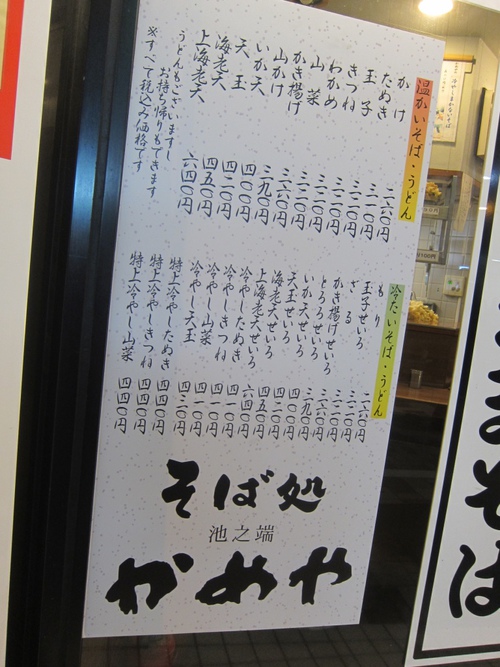 温かいそば・うどん
かけ 二六〇円
たぬき 三一〇円
玉子 三一〇円
きつね 三二〇円
わかめ 三二〇円
山菜 三二〇円
かき揚げ 三六〇円
山かけ 三九〇円
いか天 四〇〇円
天玉 四二〇円
海老天 四五〇円
上海老天 六四〇円
うどんもございますし
お持ち帰りもできます
※すべて税込み価格です
冷たいそば・うどん
もり 二六〇円
玉子せいろ 三一〇円
ざる 三二〇円
かき揚げせいろ 三六〇円
とろろせいろ 三九〇円
いか天せいろ 四〇〇円
天玉せいろ 四二〇円
海老天せいろ 四五〇円
上海老天せいろ 六四〇円
冷やしたぬき 四一〇円
冷やしきつね 四一〇円
冷やし山菜 四一〇円
冷やし天玉 四三〇円
特上冷やしたぬき 四四〇円
特上冷やしきつね 四四〇円
特上冷やし山菜 四四〇円
そば処
池之端
かめや
そば